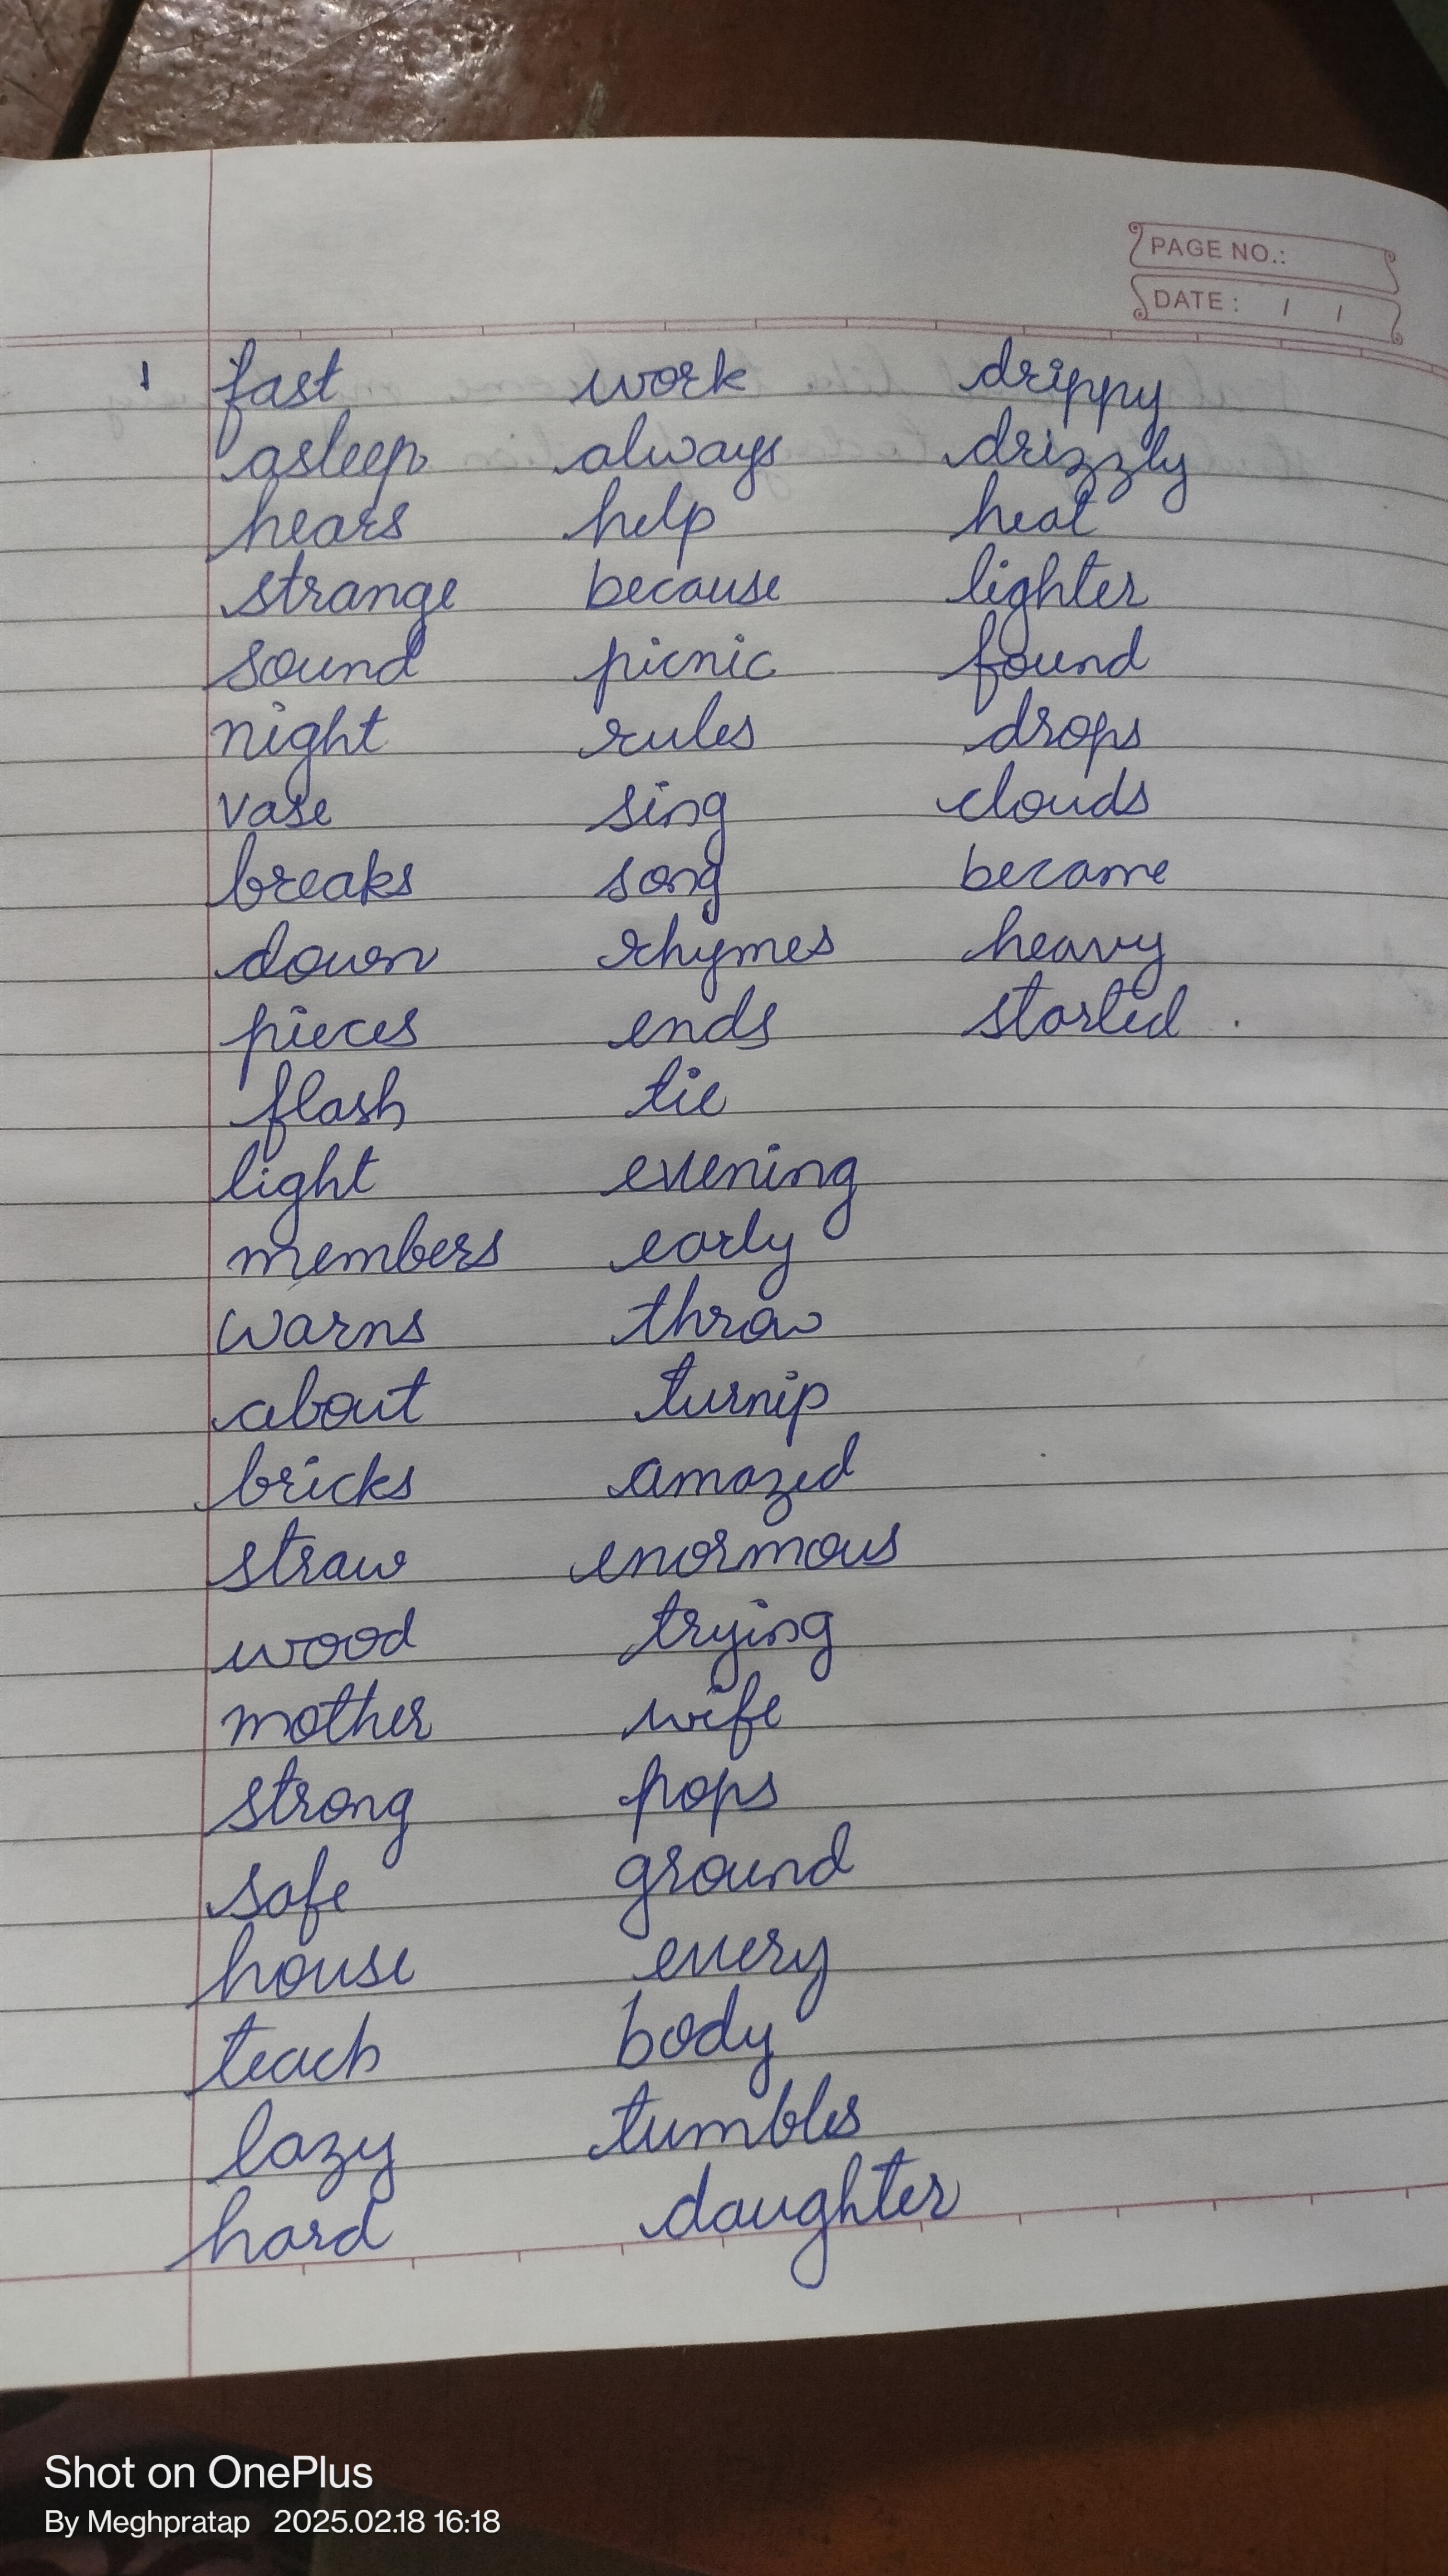 PAGE NO.:
DATE : / /
1 fast work drippy
asleep always drizzly
hears help heat
strange because lighter
sound picnic found
night rules drops
vase sing clouds
breaks song became
down rhymes heavy
pieces ends started .
flash tie
light evening
members early
warns throw
about turnip
bricks amazed
straw enormous
wood trying
mother wife
strong pops
safe ground
house every
teach body
lazy tumbles
hard daughter
Shot on OnePlus
By Meghpratap 2025.02.18 16:18